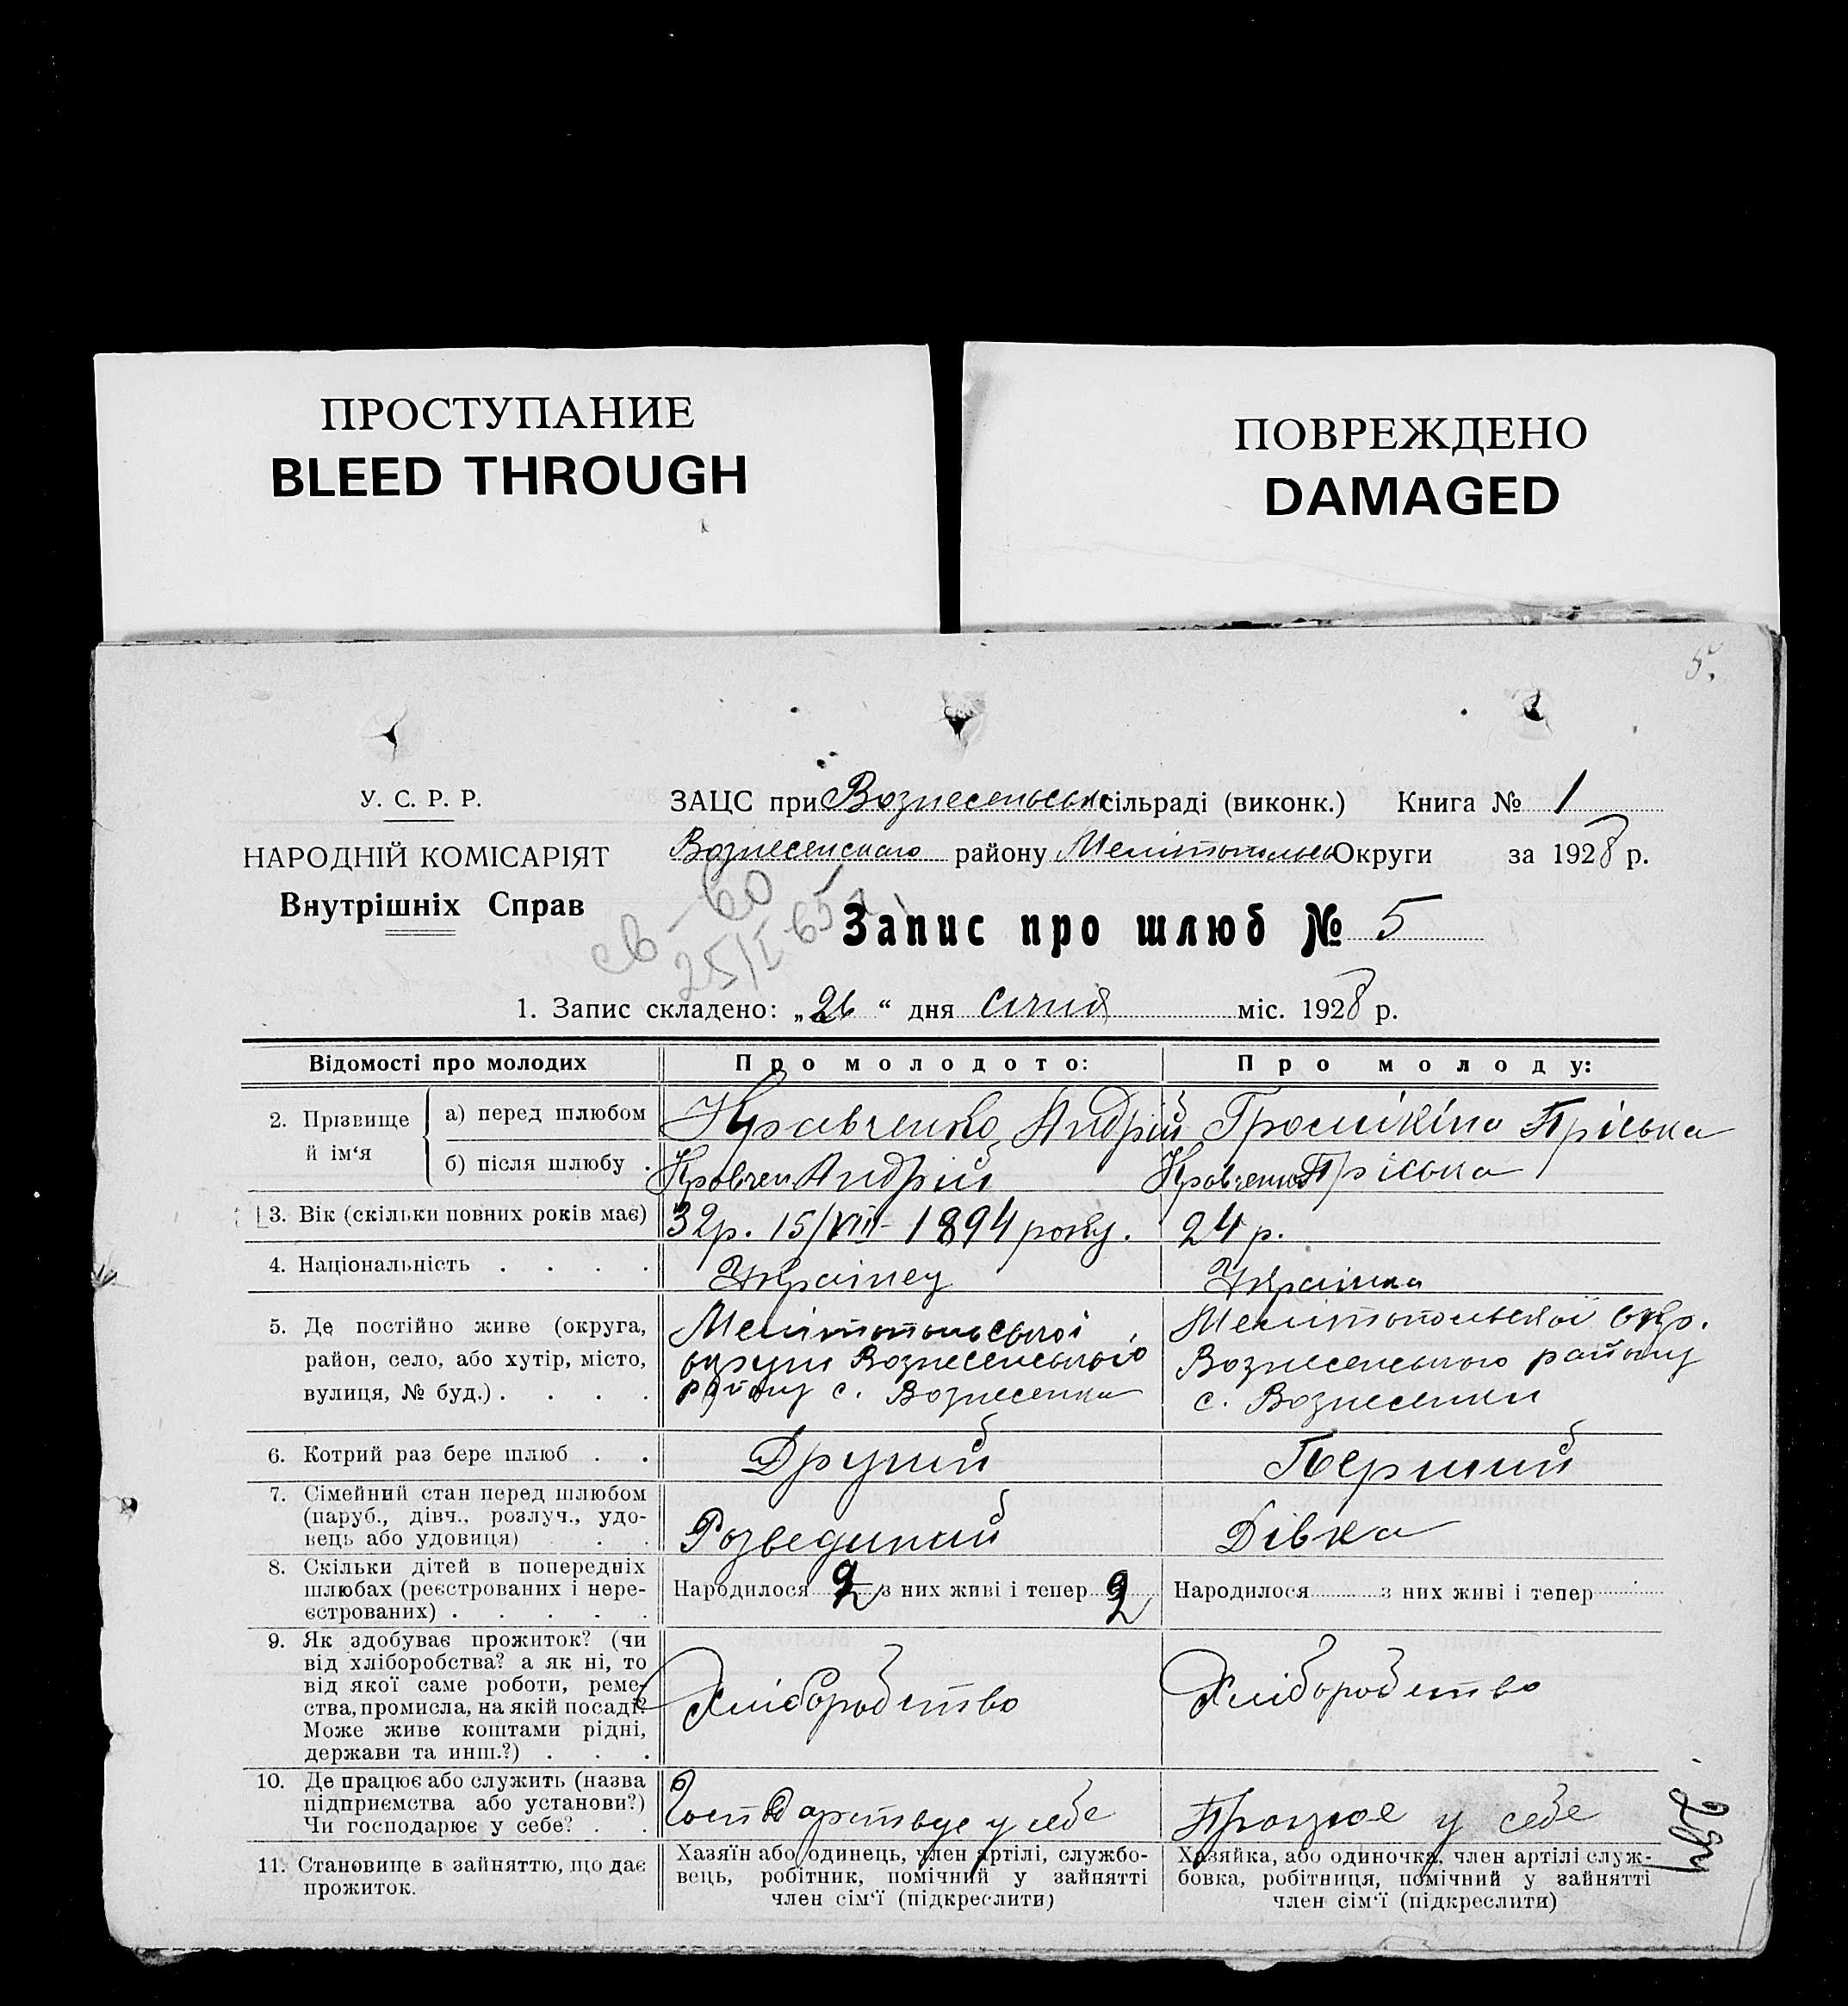 ПРОСТУПАНИЕ
BLEED THROUGH
ПОВРЕЖДЕНО
DAMAGED
5.
У. С. Р. Р.
НАРОДНІЙ КОМІСАРІЯТ
Внутрішніх Справ
ЗАЦС при Вознесенській сільраді (виконк.) Книга № 1
Вознесенского району Мелітопольс Округи за 1928 р.
св – 60
25/I 65
Запис про шлюб № 5
1. Запис складено: „26“ дня січня міс. 1928 р.
Відомості про молодих
Про молодого:
Про молоду:
2. Прізвище й ім‘я
а) перед шлюбом
Кравченко Андрій
Пріська
б) після шлюбу .
Кравчен Андрій
Кравченко Пріська
3. Вік (скільки повних років має)
32 р. 15/VIII – 1894 року.
24 р.
4. Національність . . . .
Українец
Українка
5. Де постійно живе (округа,
район, село, або хутір, місто,
вулиця, № буд.) . . . .
Мелітопольської
округи Вознесенського
району с. Вознесенка
Мелітопольської окр.
Вознесенського району
с. Вознесенки
6. Котрий раз бере шлюб . .
Другий
Перший
7. Сімейний стан перед шлюбом
(паруб., дівч., розлуч., удо-
вець або удовиця) . .
Розведений
Дівка
8. Скільки дітей в попередніх
шлюбах (реєстрованих і нере-
єстрованих) . . . . .
Народилося 2 з них живі і тепер 2
Народилося з них живі і тепер
9. Як здобуває прожиток? (чи
від хліборобства? а як ні, то
від якої саме роботи, реме-
ства, промисла, на якій посаді?
Може живе коштами рідні,
держави та инш.?) . . .
Хліборобство
Хліборобство
10. Де працює або служить (назва
підприємства або установи?)
Чи господарює у себе? . .
Господарствує у себе
Працює у себе
11. Становище в зайняттю, що дає
прожиток.
Хазяїн або одинець, член артілі, службо-
вець, робітник, помічний у зайнятті
член сім‘ї (підкреслити)
Хазяйка, або одиночка, член артілі служ-
бовка, робітниця, помічний у зайнятті
член сім‘ї (підкреслити)